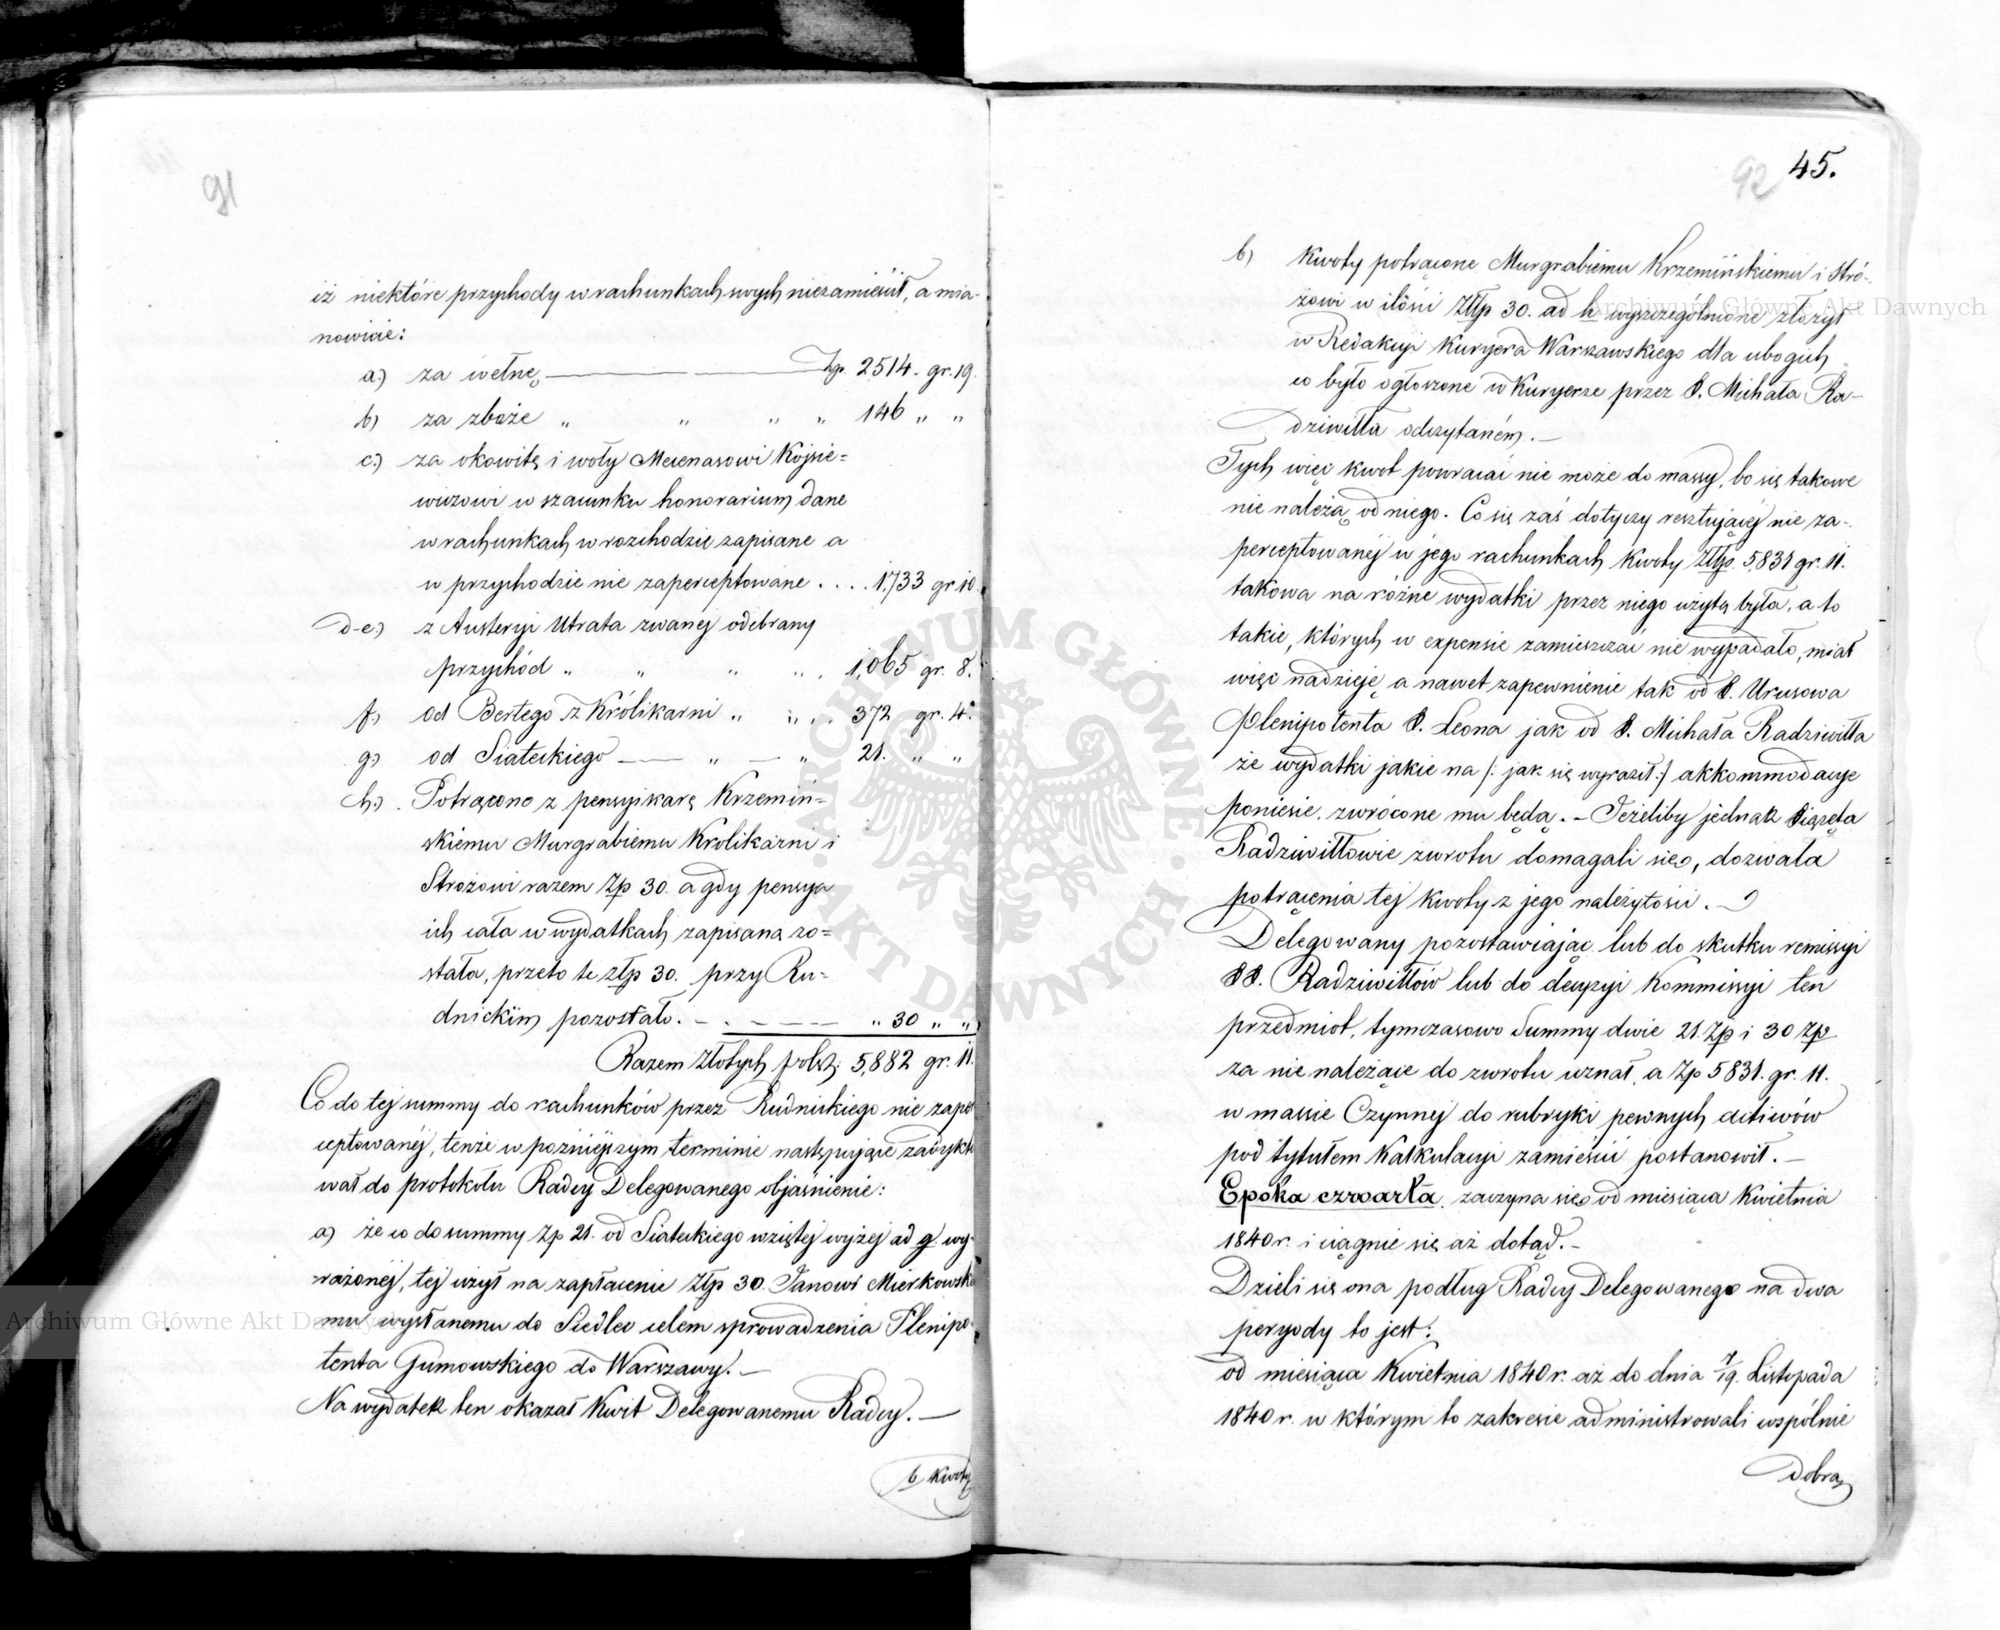 91
iż niektóre przychody w rachunkach swych niezamieścił, a mia-
nowicie:
a.) za wełnę Zp. 2514. gr. 19.
b) za zboże „ „ „ „ 146 „ „
c.) za okowitę i woły Mecenasowi Kojsie=
wiczowi w szacunku honorarium dane
w rachunkach w rozchodzie zapisane a
w przychodzie nie zaperceptowane . . . . 1,733 gr 10.
d-e.) z Austeryi Utrata zwanej odebrany
przychód „ „ „ „ . 1,065 gr. 8.
f.) od Bertego z Królikarni „ „ . . 372 gr. 4.
g.) od Siateckiego — „ — „ 21. „ „
h.) Potrącono z pensyi karę Krzemiń=
skiemu Murgrabiemu Krolikarni i
Strożowi razem Zp 30. a gdy pensya
ich cała w wydatkach zapisaną zo=
stała, przeto te złp 30. przy Ru=
dnickim pozostało. — . — — — „ 30 „ „
Razem Złotych polsk: 5,882 gr. 11.
Co do tej summy do rachunków przez Rudnickiego nie zaper
ceptowanéj, tenże w pozniejszym terminie następujące zadykto
wał do protokołu Radcy Delegowanego objaśnienie:
a) że co do summy Zp 21. od Siateckiego wziętej wyżej ad g wy-
rażonéj, tej użył na zapłacenie Złp 30. Janowi Mierkowskie
mu wysłanemu do Siedlec celem sprowadzenia Plenipo-
tenta Gumowskiego do Warszawy. —
Na wydatek ten okazał Kwit Delegowanemu Radcy. —
b Kwoty
92 45.
b) Kwoty potrącone Murgrabiemu Krzemińskiemu i Stró-
żowi w ilości Złp 30. ad h wyszczególnione złożył
w Redakcyi Kuryera Warszawskiego dla ubogich
co było ogłoszone w Kuryerze przez X. Michała Ra-
dziwiłła odczytaném. —
Tych więc kwot powracać nie może do massy, bo się takowe
nie należą od niego. Co się zaś dotyczy resztującéj nie za-
perceptowanéj w jego rachunkach kwoty Złp. 5,831 gr. 11.
takowa na różne wydatki przez niego użytą była, a to
takie, których w expensie zamieszczać nie wypadało, miał
więc nadzieję a nawet zapewnienie tak od P. Urusowa
Plenipotenta X. Leona jak od X. Michała Radziwiłła
że wydatki jakie na /: jak się wyraził :/ akkommodacye
poniesie, zwrócone mu będą. — Jeżeliby jednak Xiążęta
Radziwiłłowie zwrotu domagali się, dozwala
potrącenia tej kwoty z jego należytości. —
Delegowany pozostawiając lub do skutku remissyi
XX. Radziwiłłów lub do decyzyi Kommissyi ten
przedmiot, tymczasowo Summy dwie 21 Zp i 30 Zp
za nie należące do zwrotu uznał, a Zp 5831. gr. 11.
w massie Czynnej do rubryki pewnych actiwów
pod tytułem Kalkulacyi zamieścić postanowił. —
Epoka czwarta. zaczyna się od miesiąca Kwietnia
1840 r. i ciągnie się aż dotąd. —
Dzieli się ona podług Radcy Delegowanego na dwa
peryody to jest:
od miesiąca Kwietnia 1840 r. aż do dnia 7/19. Listopada
1840 r. w którym to zakresie administrowali wspólnie
Dobra
Archiwum Główne Akt Dawnych
Archiwum Główne Akt Dawnych
ARCHIWUM GŁÓWNE · AKT DAWNYCH ·